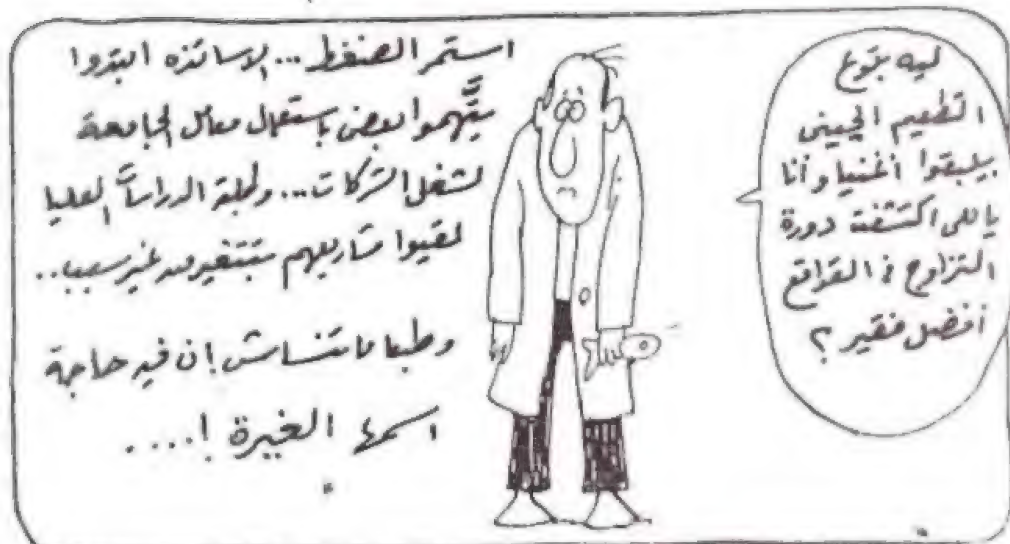 ليه بتوع
التطعيم الجينى
بيبقوا أغنيا وأنا
ياللى اكتشفت دورة
التزاوج فى القواقع
أفضل فقير ؟
استمر الضغط ... الاساتذه ابتدوا
يتَّهموا بعض باستعمال معامل الجامعة
لشغل الشركات ... وطلبة الدراسات العليا
لقيوا مشاريعهم بتتغير من غير سبب ..
وطبعا ماتنساش إن فيه حاجة
اسمها الغيرة ! ....